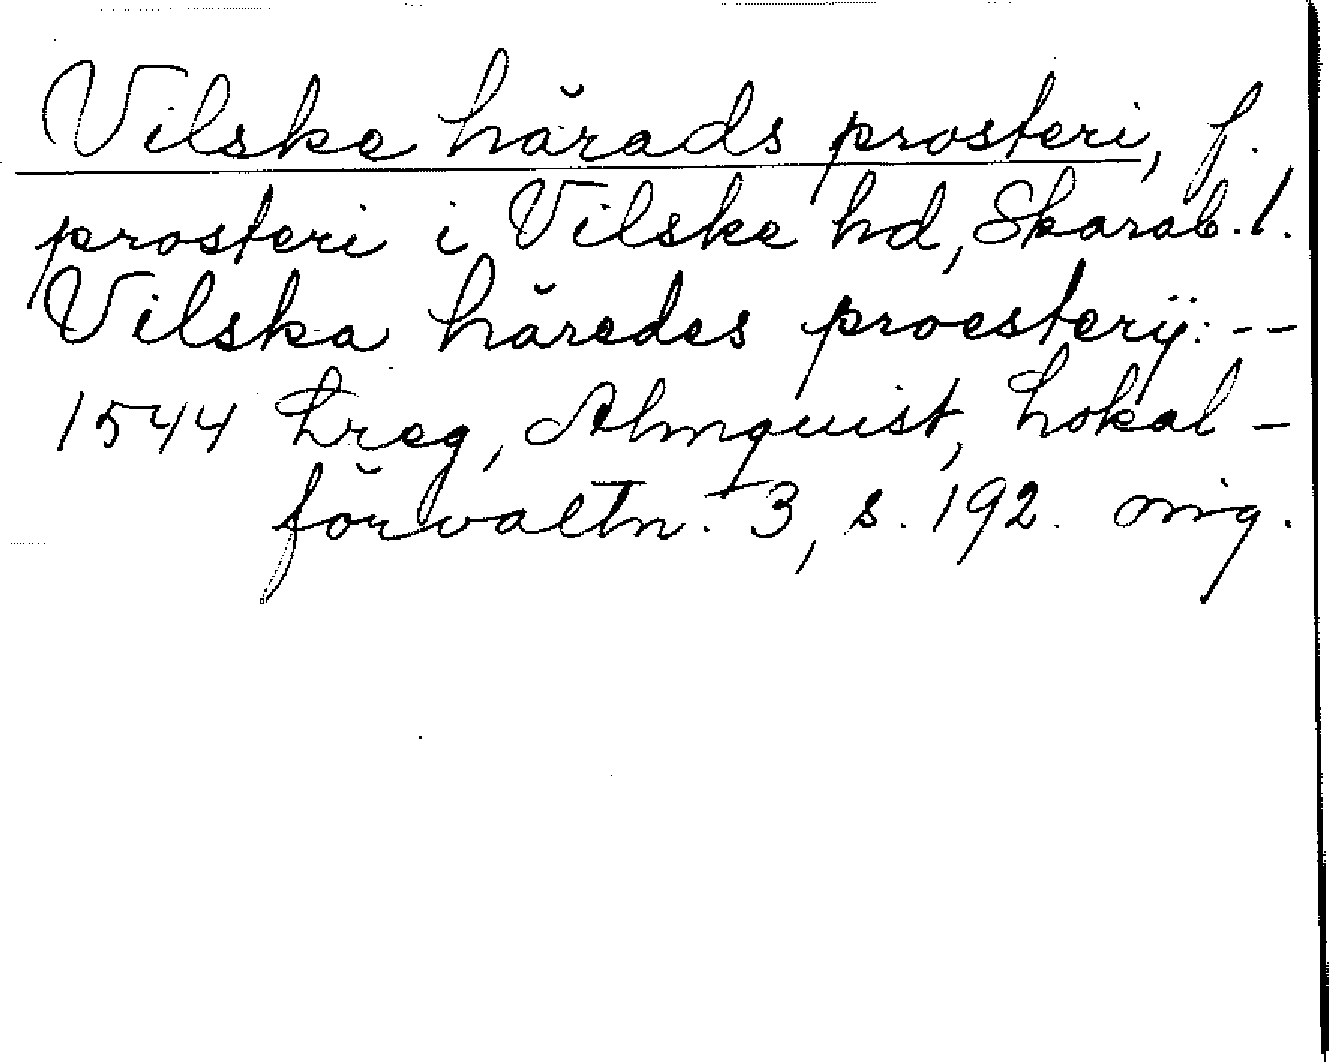 Vilske härads prosteri, f.
prosteri i Vilske hd, Skarab. l.
Vilska häredes proesterij: --
1544 Lreg, Almquist, Lokal-
förvaltn. 3, s. 192. orig.